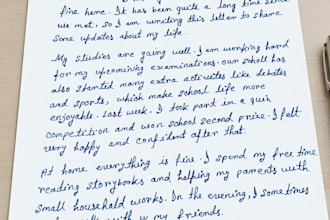 fine here. It has been quite a long time since
we met, so I am writing this letter to share
some updates about my life.
My studies are going well. I am working hard
for my upcoming examinations. our scholl has
also started many extra activities like debates
and sports, which make school life more
enjoyable. Last week, I took part in a quiz
competition and won school second prize. I felt
very happy and confident after that.
At home everything is fine. I spend my free time
reading storybooks and helping my parents with
small household works. In the evening, I sometimes
my friends.